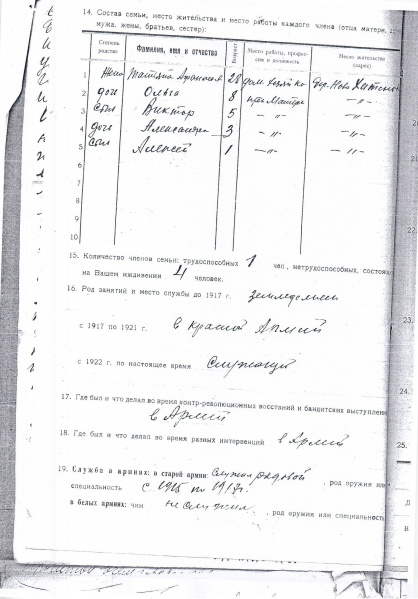 14. Состав семьи, место жительства и место работы каждого члена (отца матери,
мужа, жены, братьев, сестер):
Степень родства
Фамилия, имя и отчество
Возраст
Место работы, профессия и должность
Место жительства (адрес)
жена Татьяна 28 дом. дер. Ново
2 доч Ольга 8 при Матере —"—
3 сын Виктор 5 —"— —"—
4 доч Александра 3 —"— —"—
5 сын Алексей 1 —"— —"—
6
7
8
9
10
15. Количество членов семьи: трудоспособных 1 чел., нетрудоспособных, состоя
на Вашем иждивении 4 человек.
16. Род занятий и место службы до 1917 г. земледелием
с 1917 по 1921 г. в красной Армии
с 1922 г. по настоящее время служащий
17. Где был и что делал во время контр-революционных восстаний и бандитских выступлени
в Армии
18. Где был и что делал во время разных интервенций в Армии
19. Служба в армиях: в старой армии: служил рядовой, род оружия и
специальность с 1915 по 1917 г.
в белых армиях: чин не служил, род оружия и специальность
22.
23.
24.
25.
Д
В